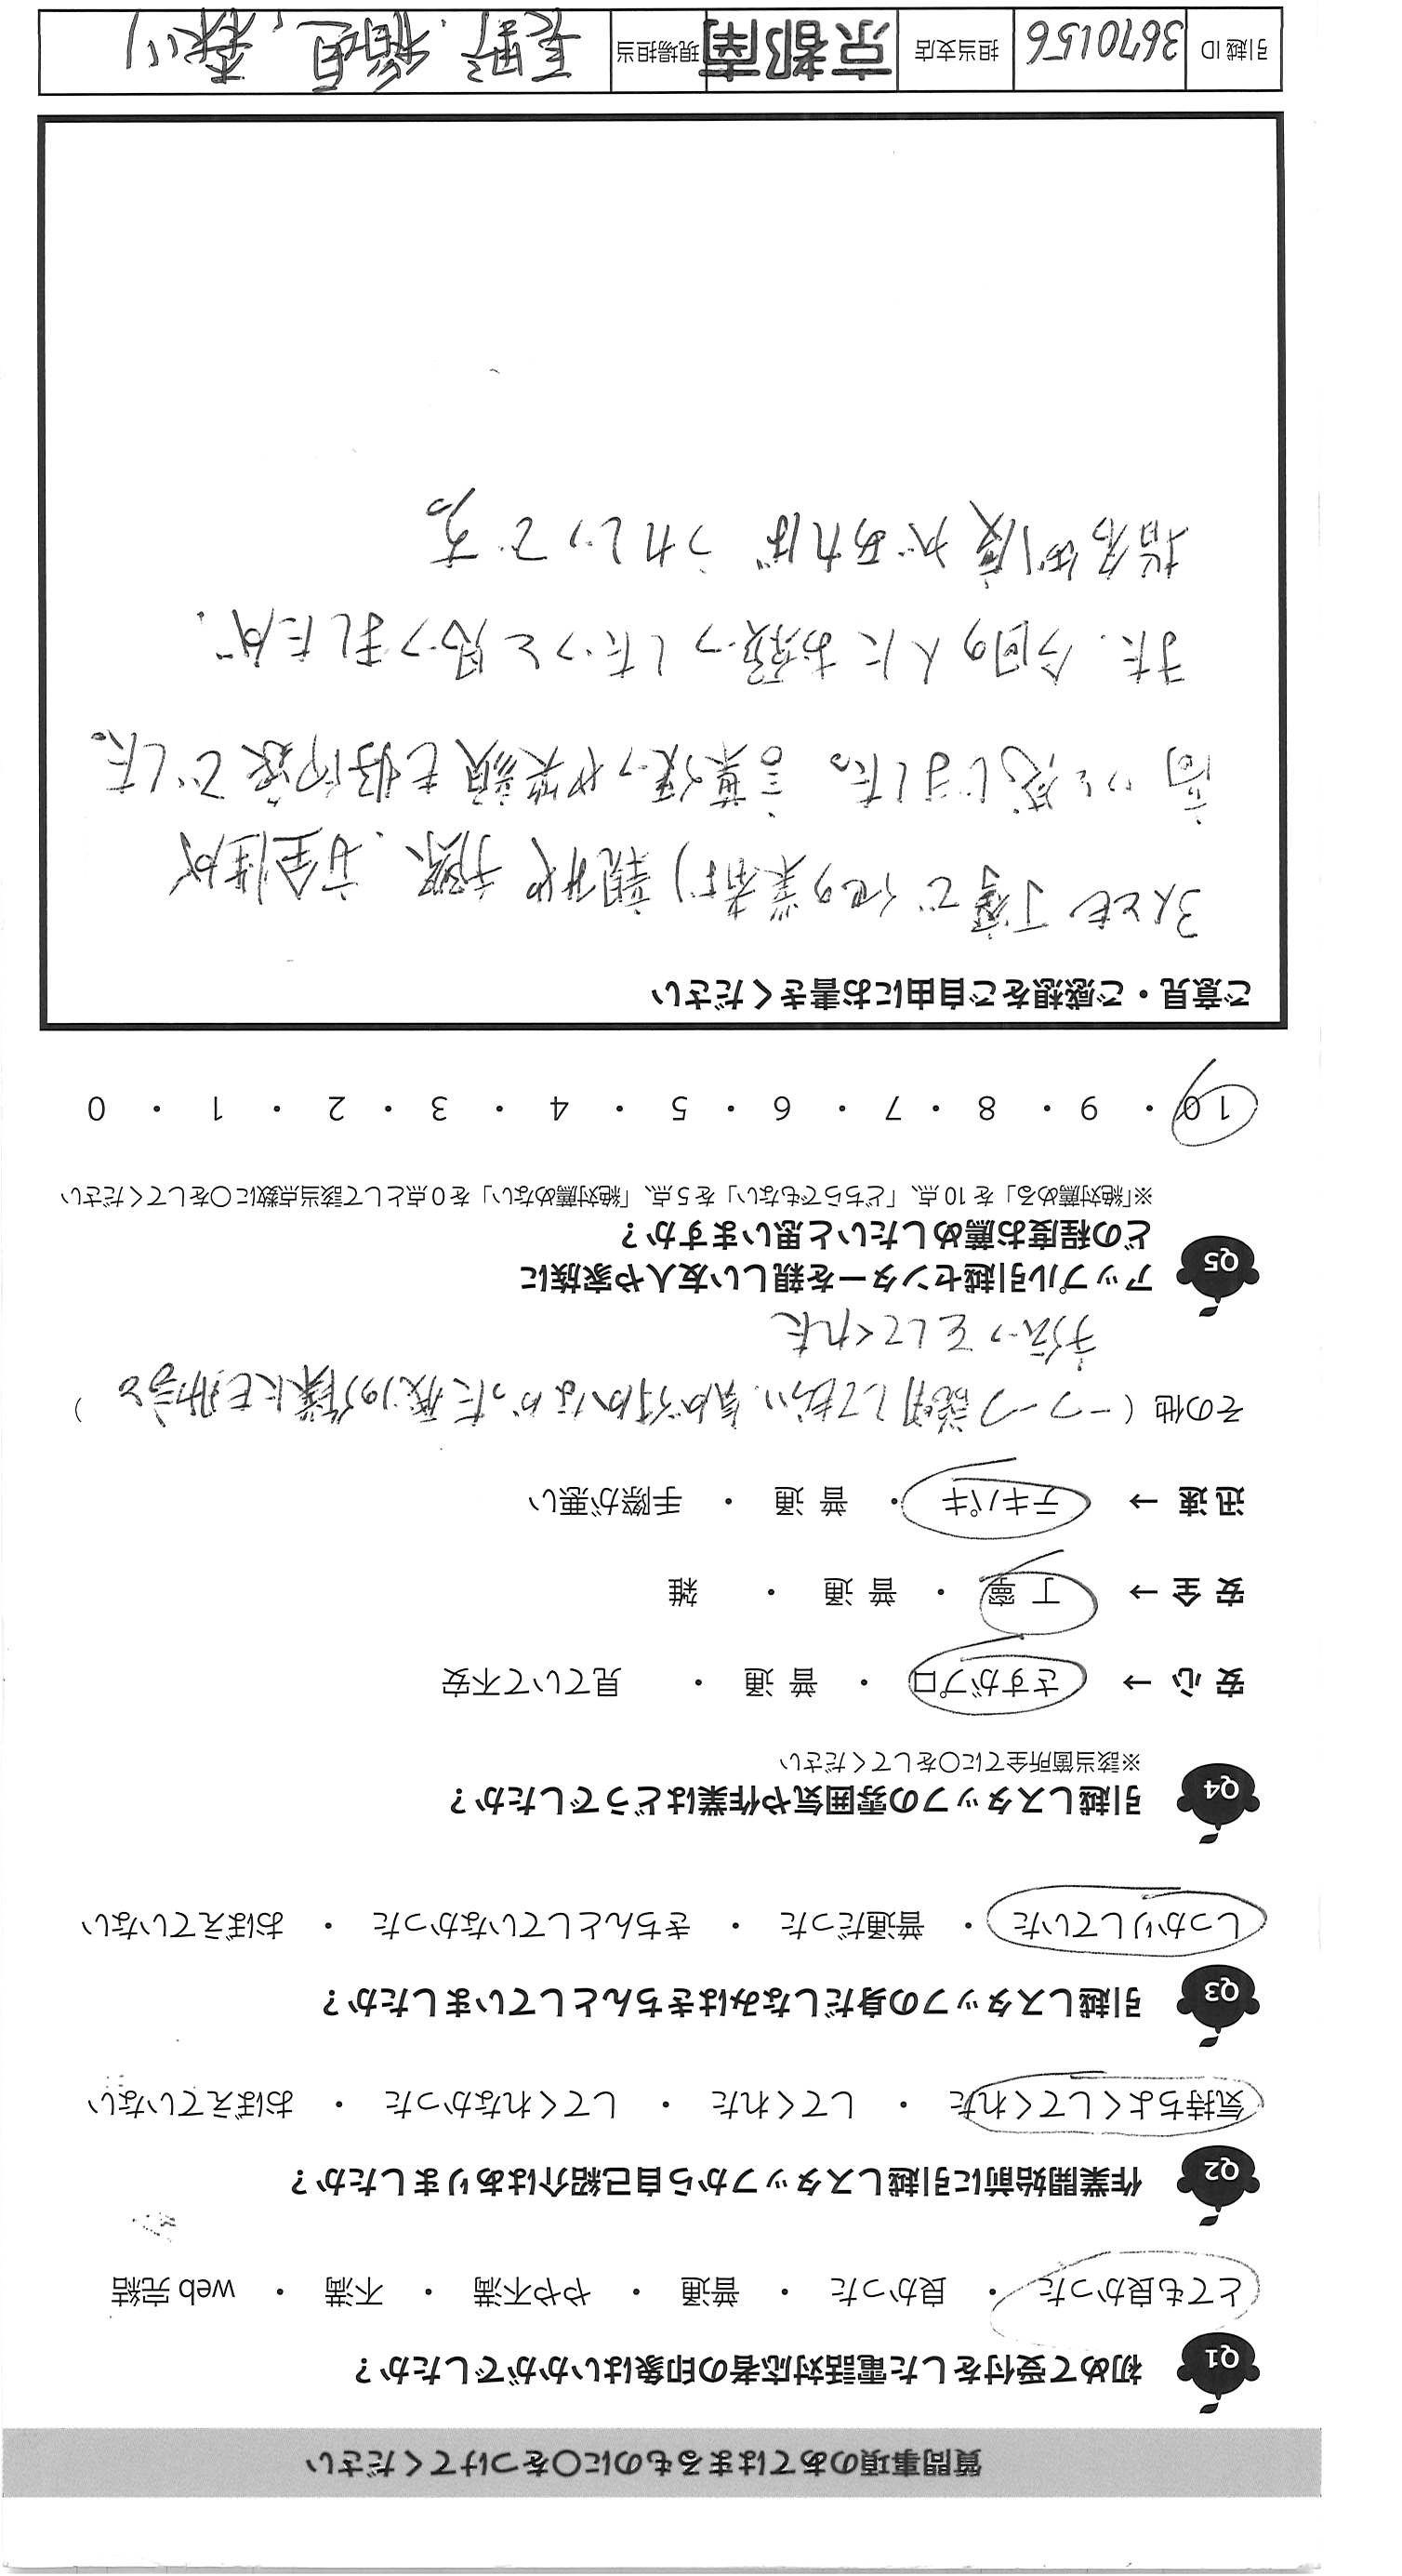 質問事項のあてはまるものに〇をつけてください
Q1 初めて受付をした電話対応者の印象はいかがでしたか？
とても良かった ・ 良かった ・ 普通 ・ やや不満 ・ 不満 ・ web 完結
Q2 作業開始前に引越しスタッフから自己紹介はありましたか？
気持ちよくしてくれた ・ してくれた ・ してくれなかった ・ おぼえていない
Q3 引越しスタッフの身だしなみはきちんとしていましたか？
しっかりしていた ・ 普通だった ・ きちんとしていなかった ・ おぼえていない
Q4 引越しスタッフの雰囲気や作業はどうでしたか？
※該当箇所全てに〇をしてください
安 心 → さすがプロ ・ 普 通 ・ 見ていて不安
安 全 → 丁 寧 ・ 普 通 ・ 雑
迅 速 → テキパキ ・ 普 通 ・ 手際が悪い
その他（一つ一つ説明して下さい、気が付かなかった残りの作業にも助言と）
手伝いをしてくれた
Q5 アップル引越センターを親しい友人や家族に
どの程度お薦めしたいと思いますか？
※「絶対薦める」を 10 点、「どちらでもない」を 5 点、「絶対薦めない」を 0 点として該当点数に〇をしてください
10 ・ 9 ・ 8 ・ 7 ・ 6 ・ 5 ・ 4 ・ 3 ・ 2 ・ 1 ・ 0
ご意見・ご感想をご自由にお書きください
3人とも丁寧で他の業者より親切や手際、安全性が
高いと感じました。言葉使いや笑顔も好印象でした。
また、今回の人にお願いしたいと思いましたが、
指名制度があればうれしいです。
引越 ID 3670156 担当支店 京都南 現場担当 長野、稲垣、森川